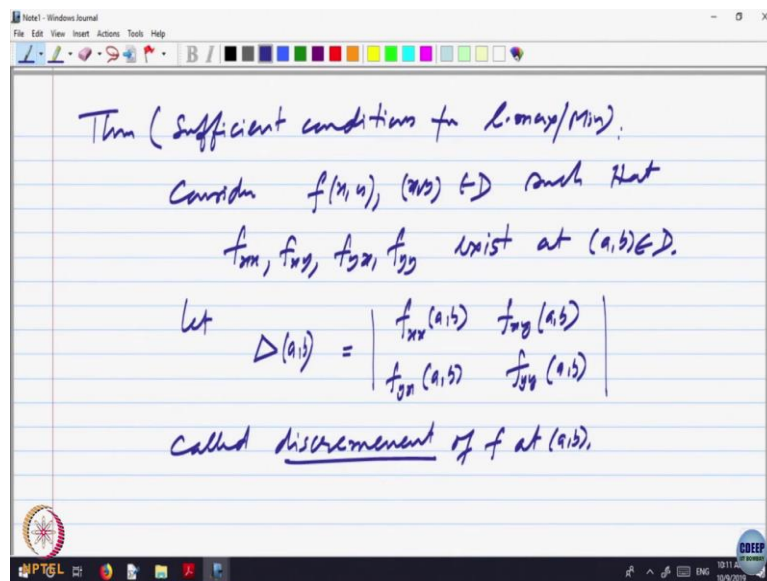 Note1 - Windows Journal
File Edit View Insert Actions Tools Help
B I
Thm (Sufficient conditions for l.max/Min).
Consider f(x,y), (x,y) ∈ D such that
f_xx, f_xy, f_yx, f_yy exist at (a,b) ∈ D.
Let Δ(a,b) = | f_xx(a,b) f_xy(a,b) |
| f_yx(a,b) f_yy(a,b) |
Called discremenent of f at (a,b).
NPTEL
CDEEP
IIT BOMBAY
ENG
10:11 A
10/9/2019